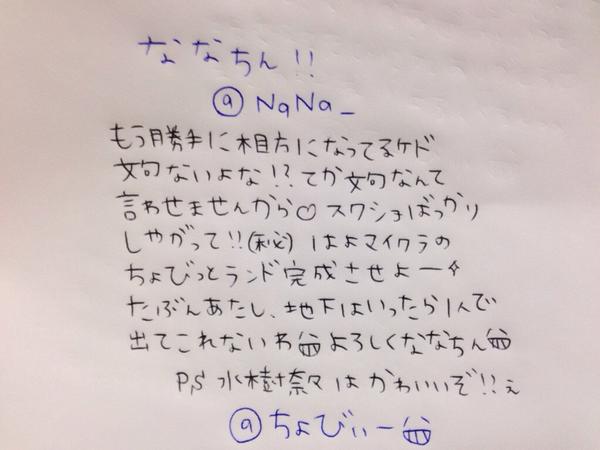 ななちん!!
@NaNa_
もう勝手に相方になってるケド
文句ないよな!?てか文句なんて
言わせませんから♡スクショばっかり
しやがって!!(秘) はよマイクラの
ちょびっとランド完成させよー✧
たぶんあたし、地下はいったら1人で
出てこれないわ よろしくななちん
P,S 水樹奈々はかわいいぞ!!ぇ
@ちょびぃー